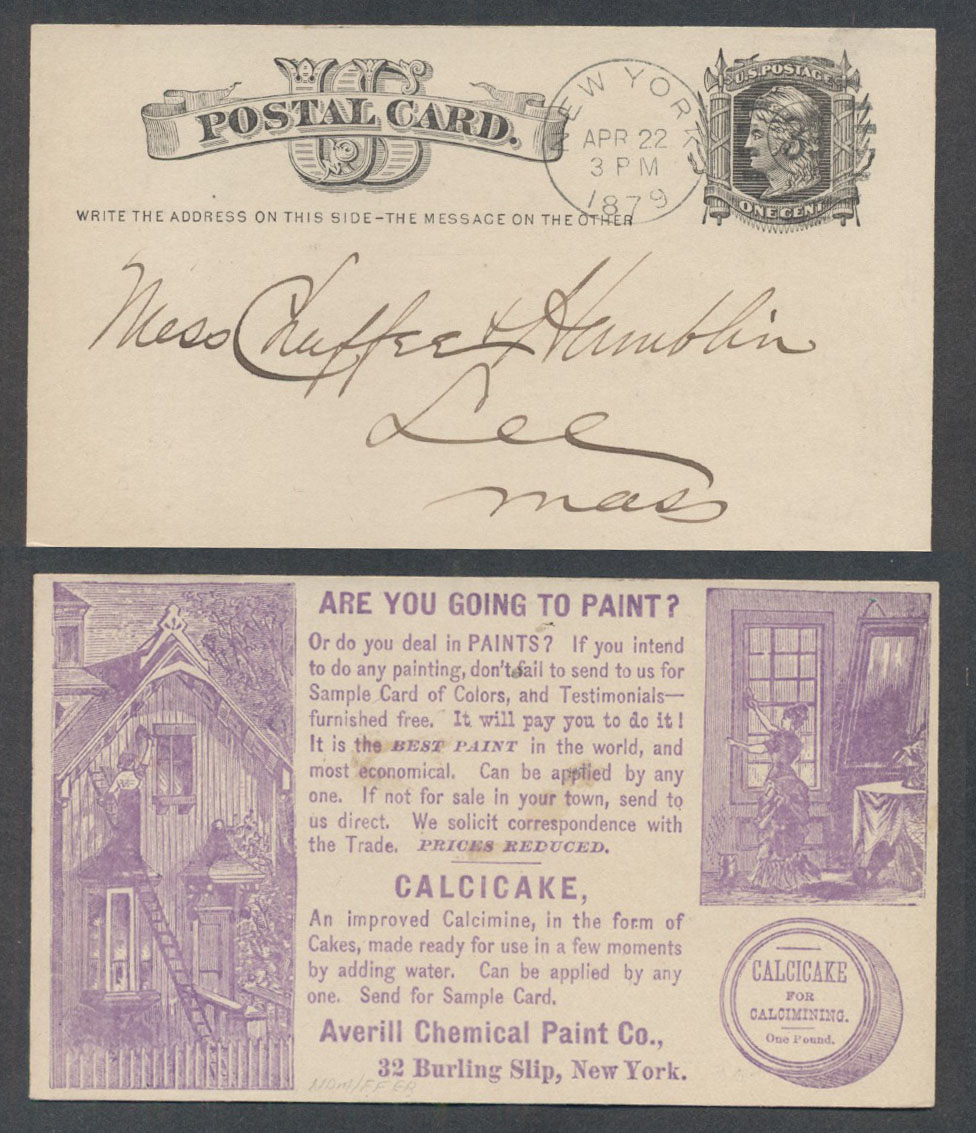 US
POSTAL CARD.
NEW YORK
APR 22
3 PM
1879
U.S. POSTAGE
ONE CENT
WRITE THE ADDRESS ON THIS SIDE-THE MESSAGE ON THE OTHER
Mess Chaffee & Hamblin
Lee
Mass
ARE YOU GOING TO PAINT?
Or do you deal in PAINTS? If you intend
to do any painting, don't fail to send to us for
Sample Card of Colors, and Testimonials—
furnished free. It will pay you to do it!
It is the BEST PAINT in the world, and
most economical. Can be applied by any
one. If not for sale in your town, send to
us direct. We solicit correspondence with
the Trade. PRICES REDUCED.
CALCICAKE,
An improved Calcimine, in the form of
Cakes, made ready for use in a few moments
by adding water. Can be applied by any
one. Send for Sample Card.
Averill Chemical Paint Co.,
32 Burling Slip, New York.
CALCICAKE
FOR
CALCIMINING.
One Pound.